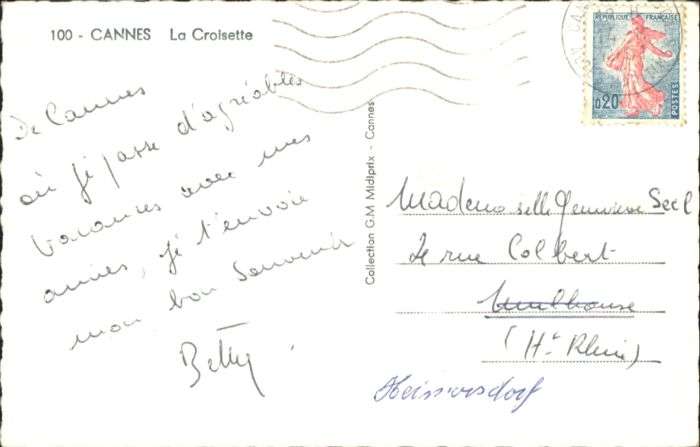 100 - CANNES La Croisette
De Cannes
où je passe d'agréables
vacances avec mes
amies, je t'envoie
mon bon souvenir
Betty.
Collection G.M Midiprix - Cannes
RÉPUBLIQUE FRANÇAISE
0,20
POSTES
Mademoiselle Geneviève Seel
rue Colbert
Mulhouse
(Ht Rhin)